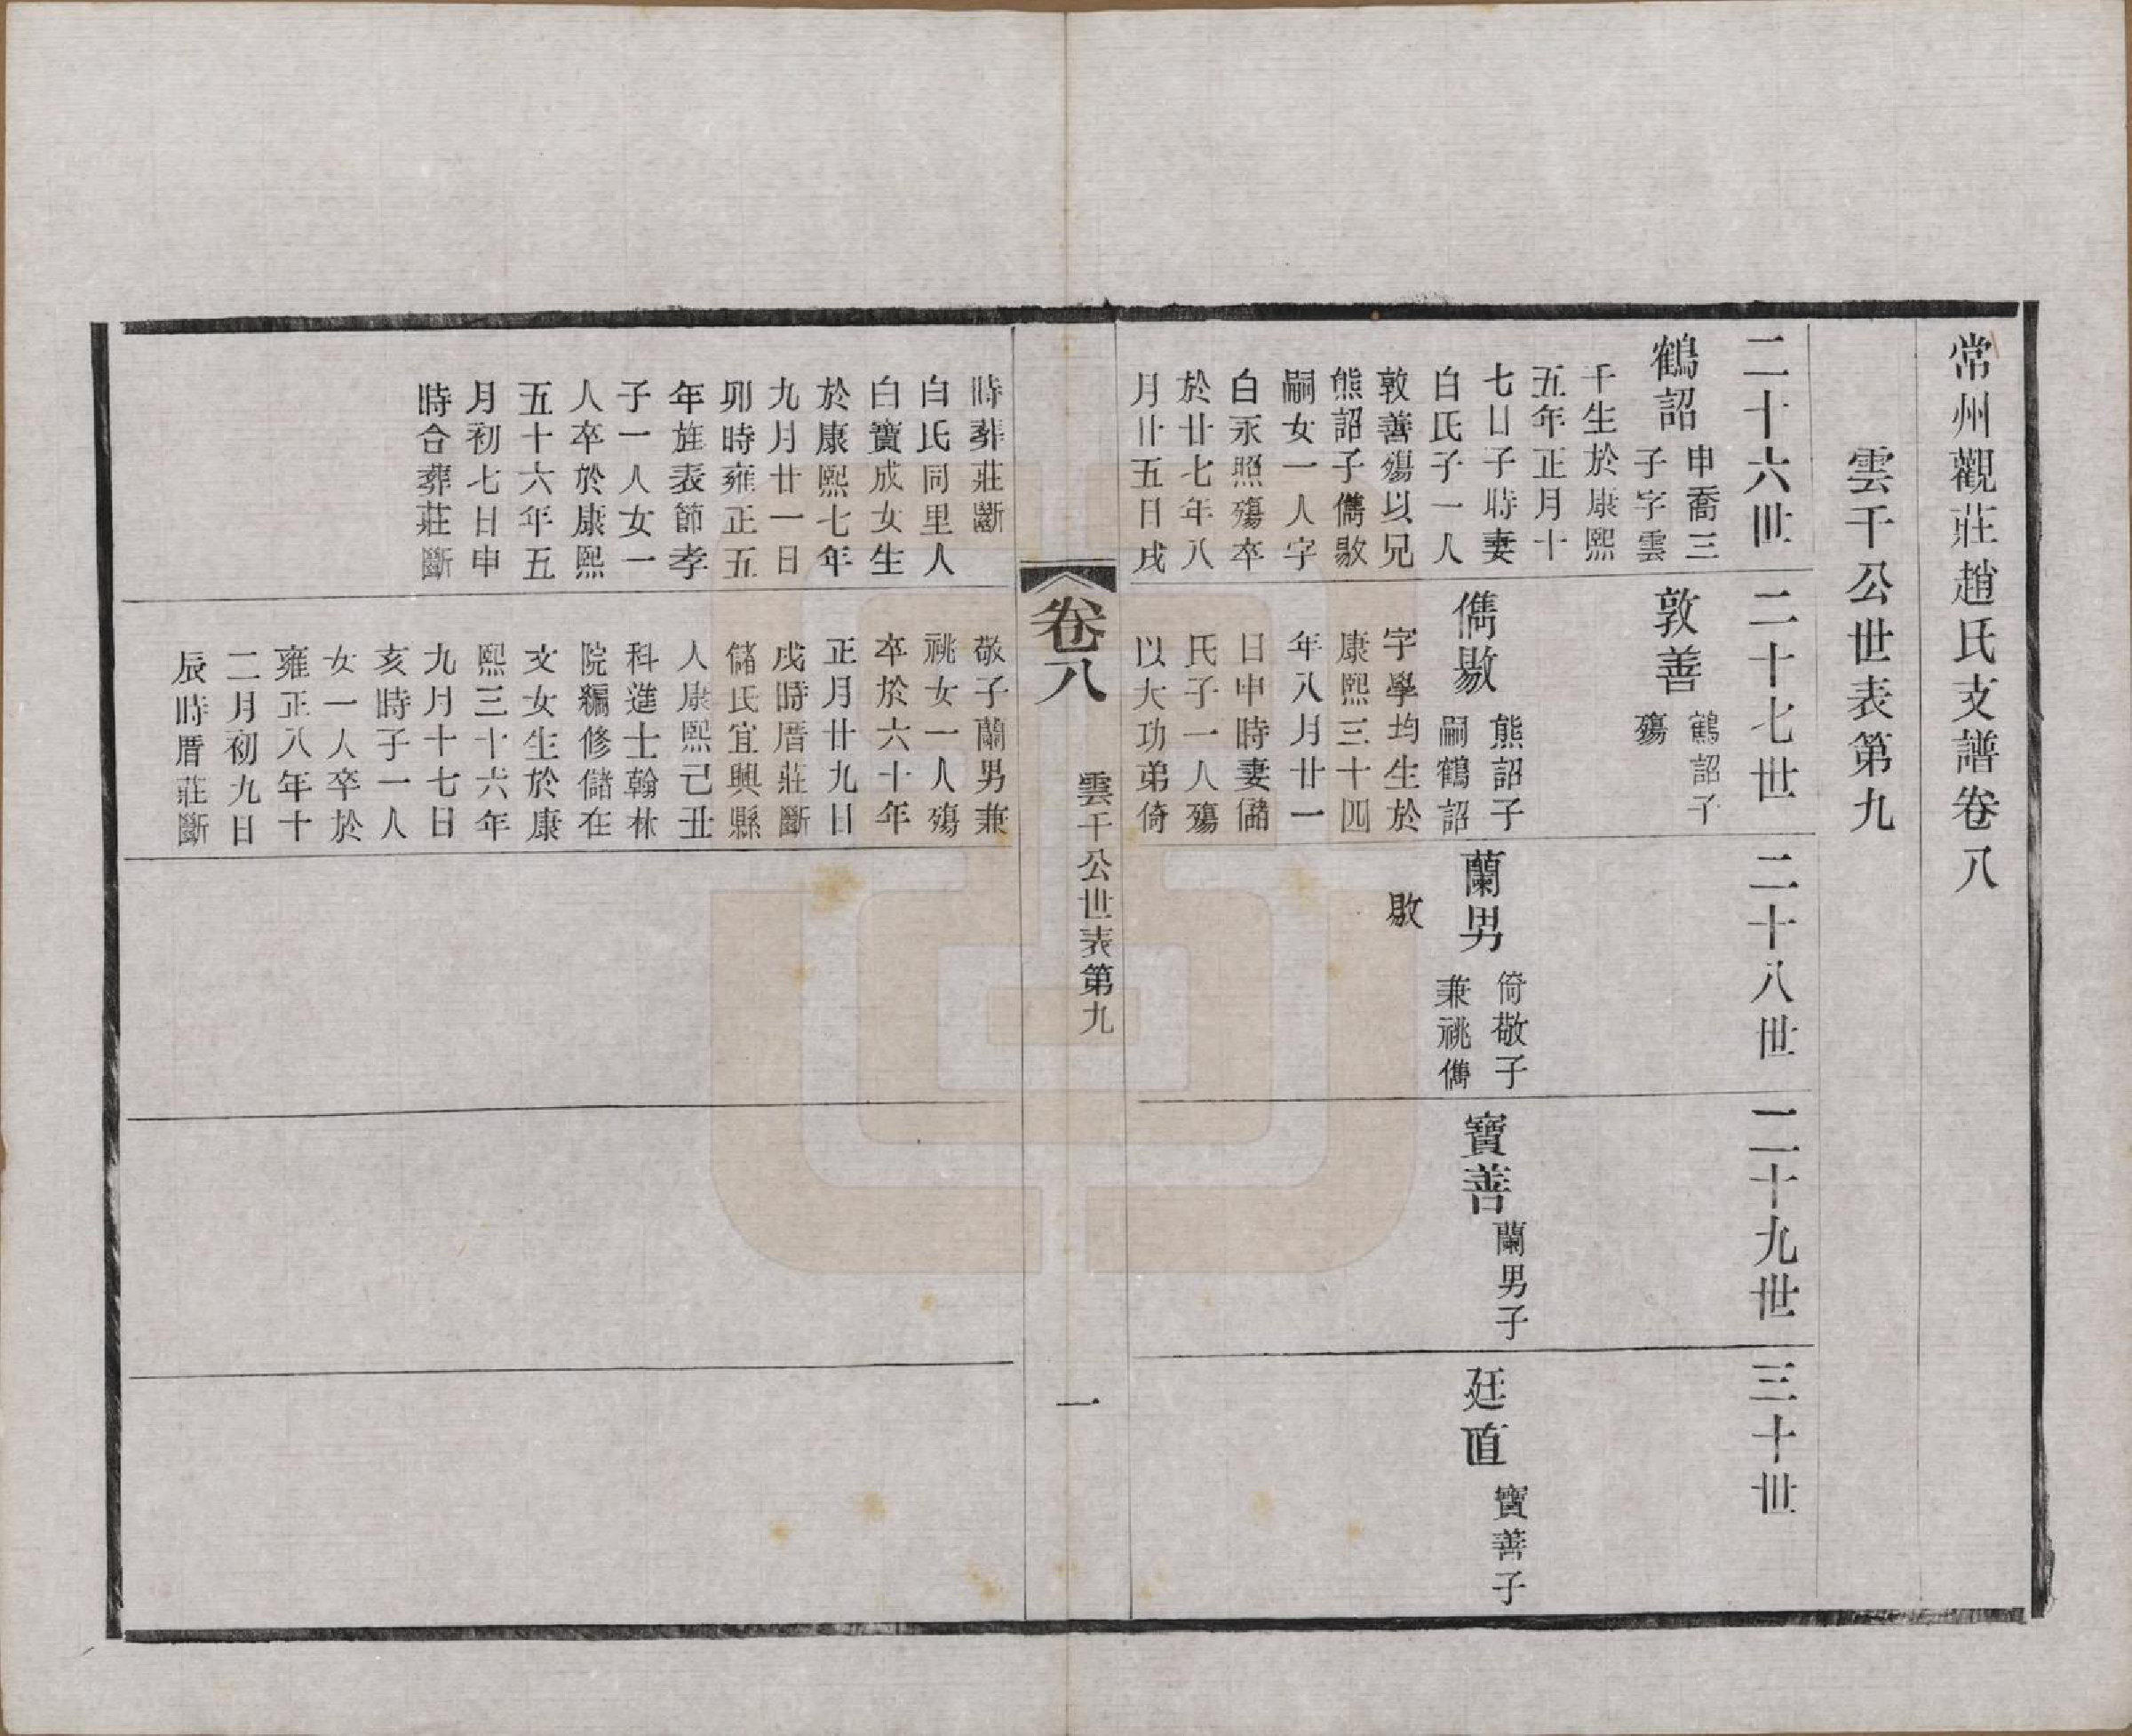 常州觀莊趙氏支譜卷八
雲千公世表第九
二十六世
鶴詔
申喬三
子字雲
千生於康熙
五年正月十
七日子時妻
白氏子一人
敦善殤以兄
熊詔子儁敭
嗣女一人字
白永照殤卒
於廿七年八
月廿五日戌
時葬莊斷
白氏同里人
白寶成女生
於康熙七年
九月廿一日
卯時雍正五
年旌表節孝
子一人女一
人卒於康熙
五十六年五
月初七日申
時合葬莊斷
二十七世
敦善
鶴詔子
殤
儁敭
熊詔子
嗣鶴詔
字學均生於
康熙三十四
年八月廿一
日申時妻儲
氏子一人殤
以大功弟倚
敬子蘭男兼
祧女一人殤
卒於六十年
正月廿九日
戌時厝莊斷
儲氏宜興縣
人康熙己丑
科進士翰林
院編修儲在
文女生於康
熙三十六年
九月十七日
亥時子一人
女一人卒於
雍正八年十
二月初九日
辰時厝莊斷
二十八世
蘭男
倚敬子
兼祧儁
敭
二十九世
寶善
蘭男子
三十世
廷直
寶善子
卷八
雲千公世表第九
一